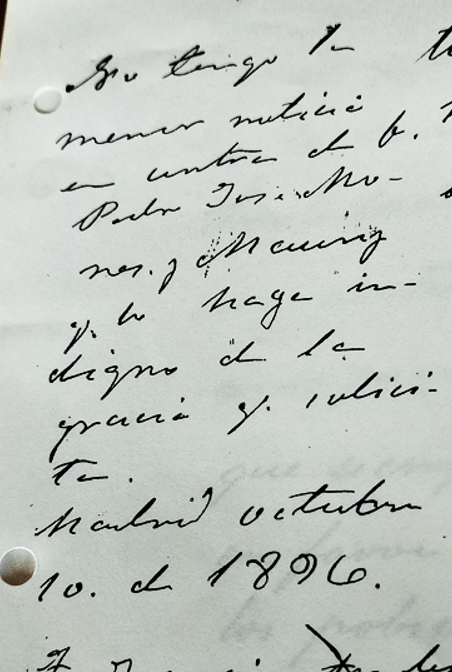 No tengo la
menor noticia
en contra de D.
Pedro José Mo-
nes. y Mauriz
q. lo haga in-
digno de la
gracia q. solici-
ta.
Madrid octubre
10. de 1896.